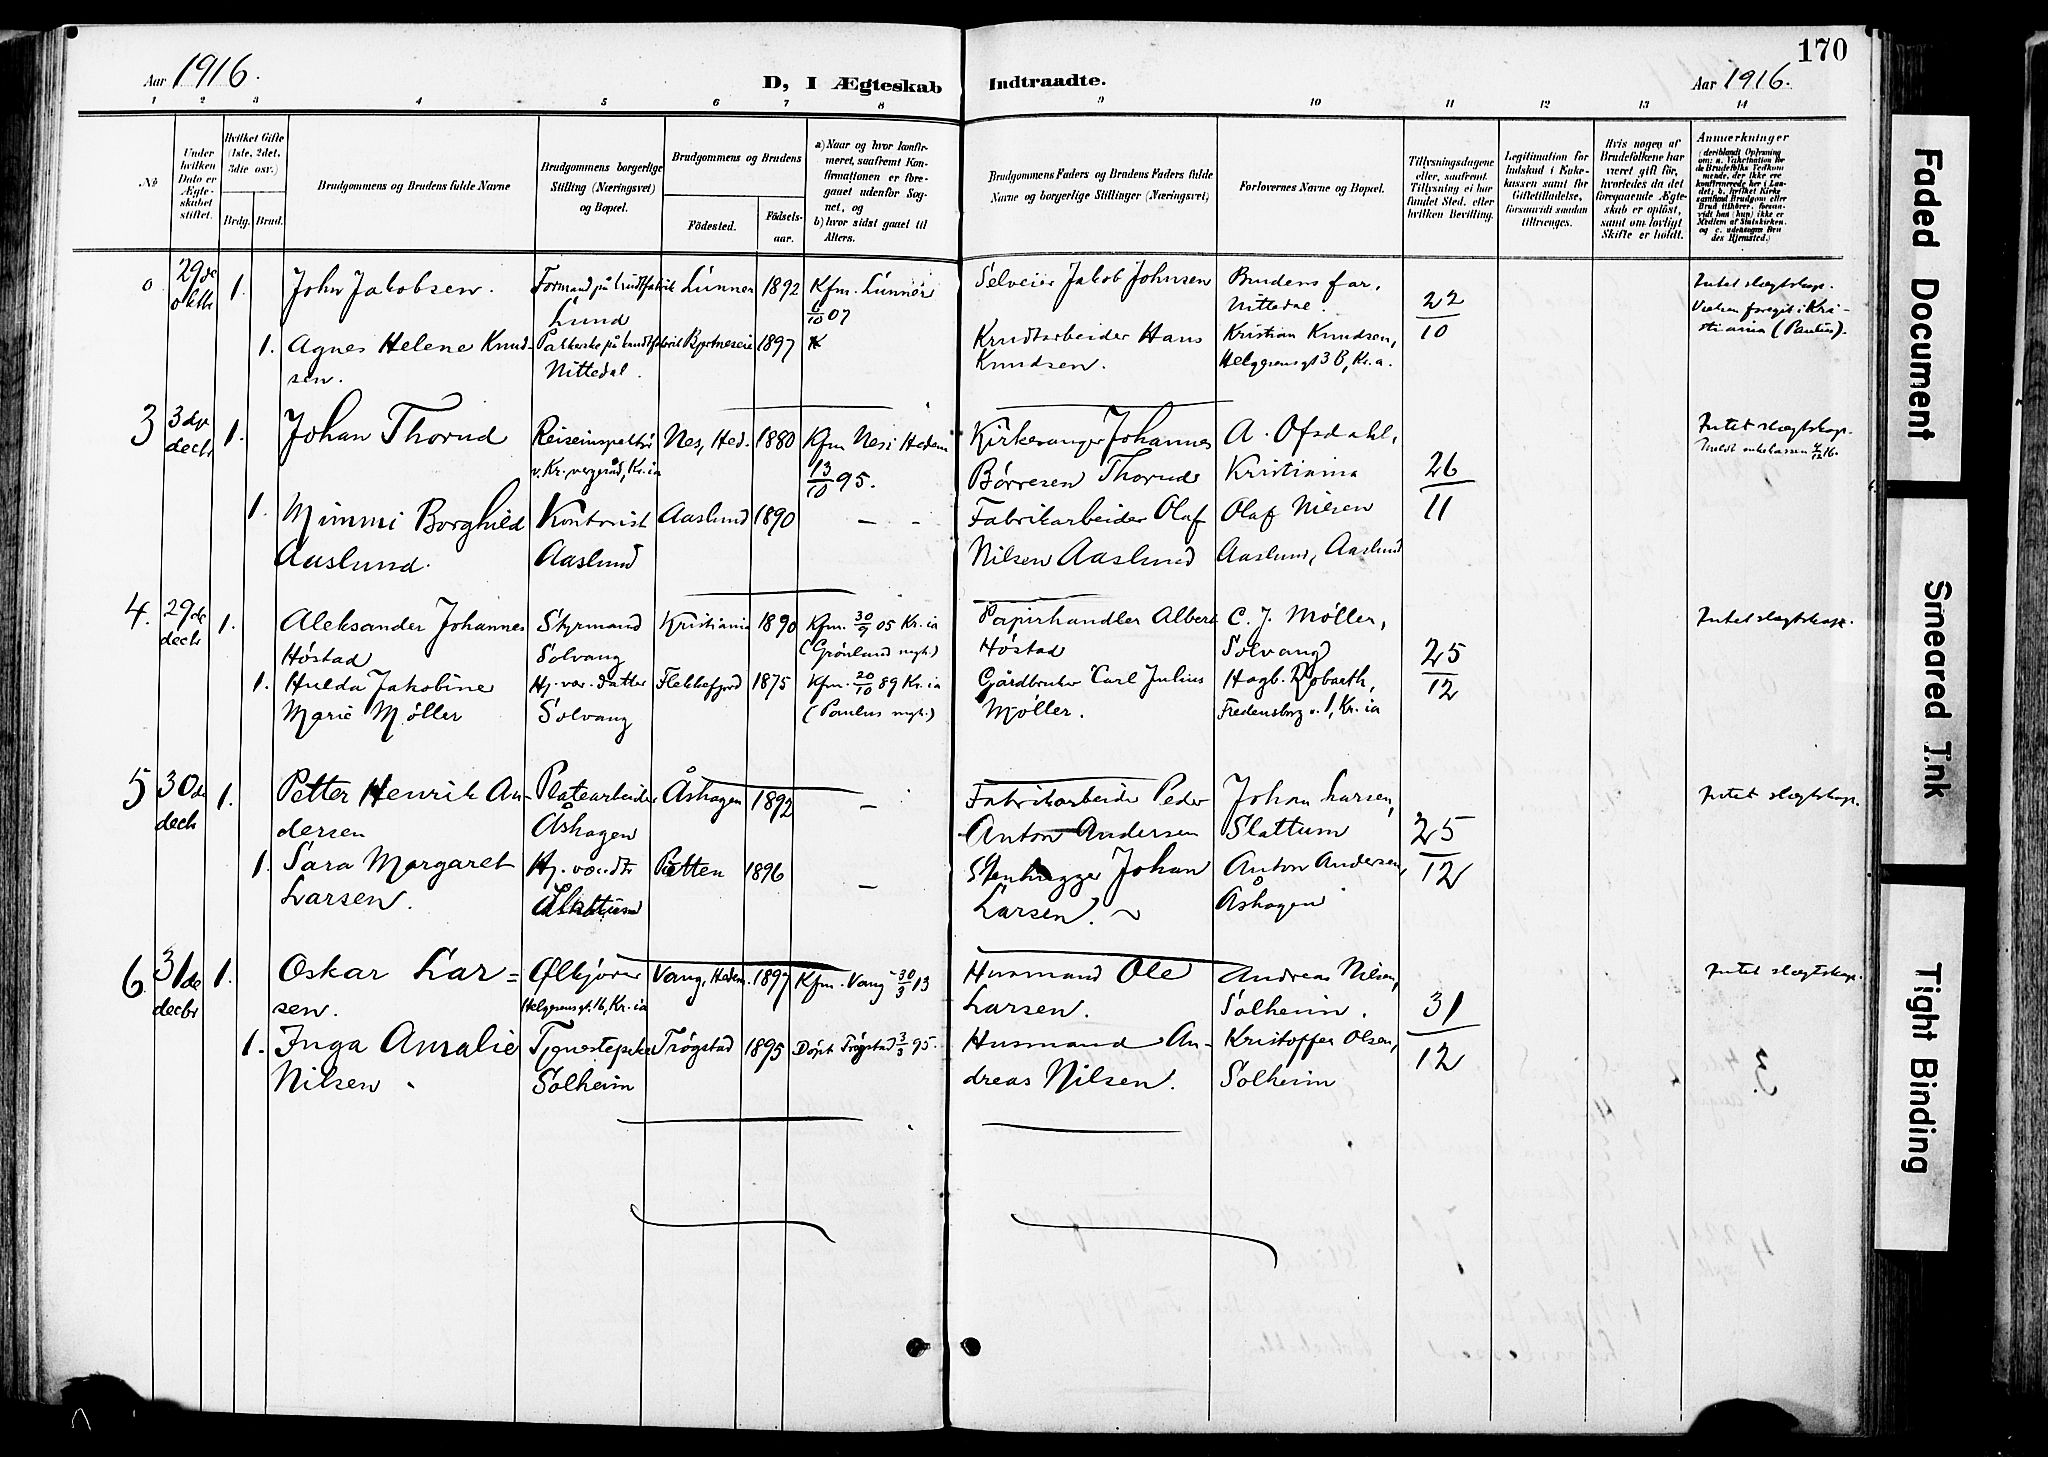 170
Aar 1916.
D, I Ægteskab Indtraadte.
Aar 1916.
1 2 3 4 5 6 7 8 9 10 11 12 13 14
No
Under hvilken Dato er Ægteskabet stiftet.
Hvilket Gifte (1ste, 2det, 3die osv.)
Brdg. Brud.
Brudgommens og Brudens fulde Navne
Brudgommens borgerlige Stilling (Næringsvei) og Bopæl.
Brudgommens og Brudens
Fødested.
Fødselsaar.
a) Naar og hvor konfirmeret, saafremt Konfirmationen er foregaaet udenfor Sognet, og
b) hvor sidst gaaet til Alters.
Brudgommens Faders og Brudens Faders fulde Navne og borgerlige Stillinger (Næringsvei)
Forlovernes Navne og Bopæl.
Tillysningsdagene eller, saafremt Tillysning ei har fundet Sted, efter hvilken Bevilling.
Legitimation for Indskud i Enkekassen samt for Giftetilladelse, forsaavidt saadan tiltrænges.
Hvis nogen af Brudefolkene har været gift før, hvorledes da det foregaaende Ægteskab er opløst, samt om lovligt Skifte er holdt.
Anmerkninger
0 29de oktb 1. John Jakobsen. Formand på krudtfabrik Lunner 1892 Kfm. Lunner Selveier Jakob Johnsen Brudens far, 22 Intet slægtskap.
Lund 8/10 07 Nittedal. 10 Vielsen foregik i Kri-
1. Agnes Helene Knud- Pakkerske på krudtfabrik 1897 Krudtarbeider Hans Kristian Knudsen, stiania (Paulus).
sen. Nittedal. Knudsen. Helggesensgt 3 B, Kr.a.
3 3dje decbr 1. Johan Thorud Reiseinspektør Nes, Hed. 1880 Kfm Nes i Hedem Kirkesanger Johannes A. Ofsdahl, 26 Intet slægtskap.
Kr.ia 13/10 95. Børresen Thorud Kristiania 11
1. Mimmi Borghild Kontorist Aaslund 1890 – - Fabrikarbeider Olaf Olaf Nilsen
Aaslund. Aaslund Nilsen Aaslund Aaslund, Aaslund
4. 29de decbr 1. Aleksander Johannes Styrmand Kristiania 1890 Kfm. 30/9 05 Kr.ia Papirhandler Albert C. J. Møller, 25 Intet slægtskap.
Høstad Solvang (Grønland mgh.) Høstad Solvang 12
1. Hulda Jakobine Hj. vær. datter Flekkefjord 1875 Kfm. 20/10 89 Kr.ia Gårdbruker Carl Julius Hagb. Robarth,
Marie Møller Solvang (Paulus mgh.) Møller. Fredensborg v. 1, Kr.ia
5 30de decb 1. Petter Henrik An- Platearbeider Åshagen 1892 – Fabrikarbeider Peder Johan Larsen, 25 Intet slægtskap.
dersen Åshagen Anton Andersen Slattum 12
1. Sara Margaret Hj. vær. dtr 1896 – Stenhugger Johan Anton Andersen,
Larsen. Slattum Larsen. Åshagen
6. 31de decbr 1. Oskar Lar= Ølkjører Vang, Hedem. 1897 Kfm. Vang 30/3 13 Husmand Ole Andreas Nilsen, 31 Intet slægtskap.
sen. Helggesensgt. 16, Kr.ia Larsen. Solheim. 12
1. Inga Amalie Tjenestepike Trøgstad 1895 Døpt Trøgstad 3/3 95. Husmand An- Kristoffer Olsen,
Nilsen. Solheim dreas Nilsen. Solheim
Faded Document
Smeared Ink
Tight Binding